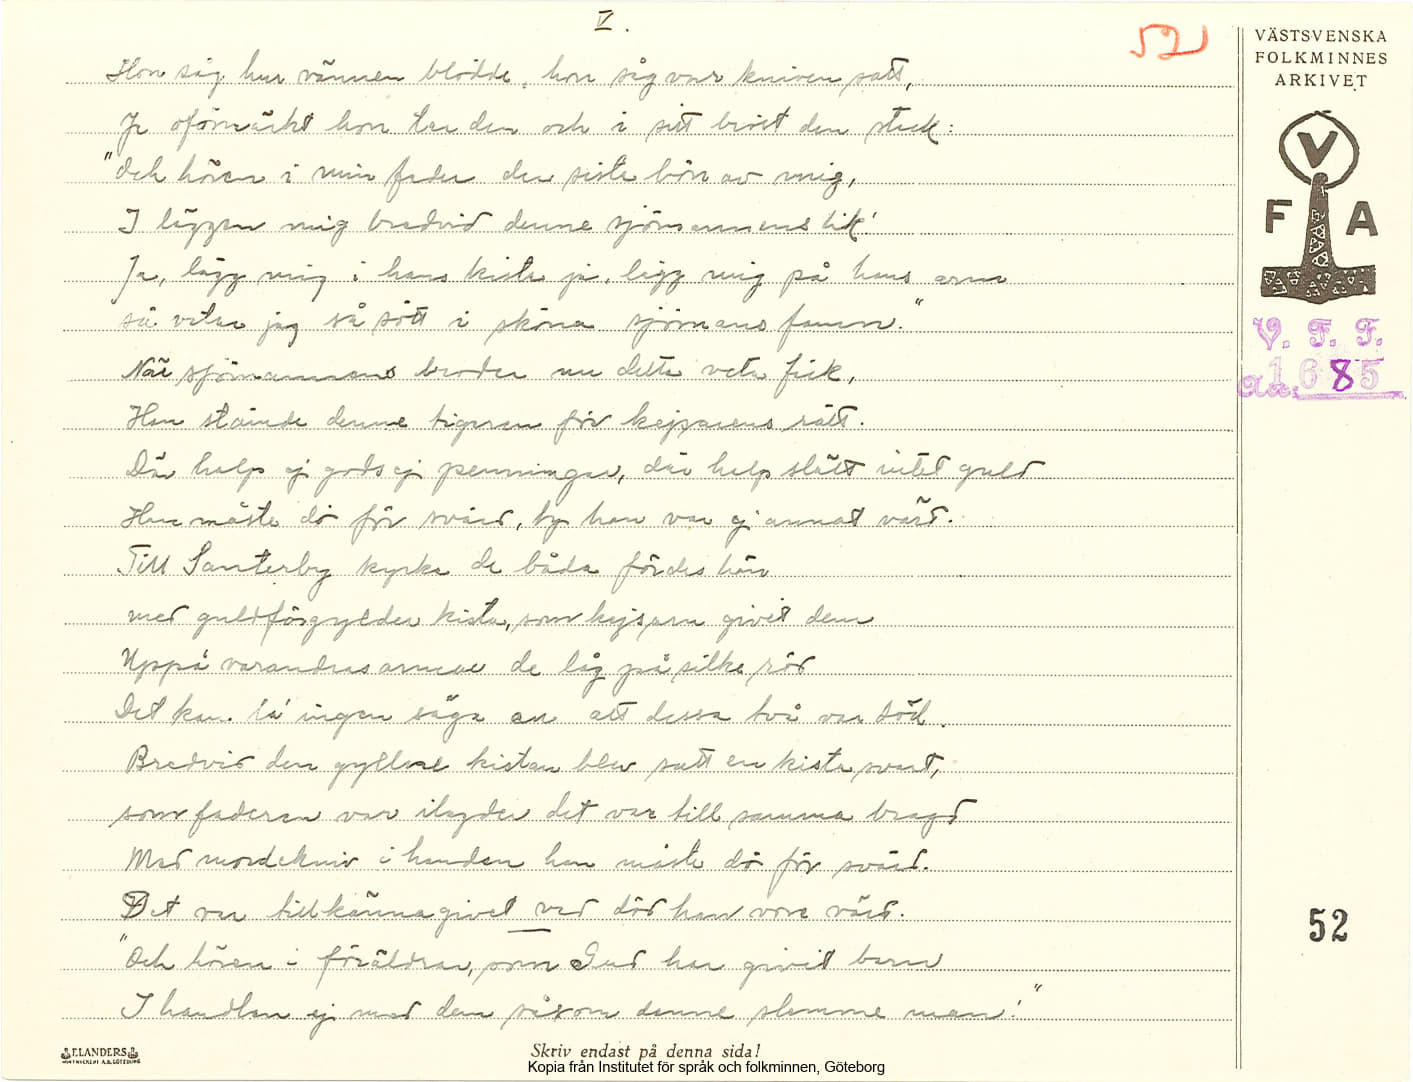 V.
52
VÄSTSVENSKA
FOLKMINNES
ARKIVET
V
F A
V. F. F.
1685
Hon såg hur vännen blödde, hon såg var kniven satt,
Ja oförmärkt hon tar den och i sitt bröst den stack:
"Och hören i min fader den sista bön av mig,
I läggen mig bredvid denne sjömannens lik!
Ja, lägg mig i hans kista ja, lägg mig på hans arm
så vilar jag så sött i sköna sjömans famn."
När sjömannens broder nu detta veta fick,
Han stämde denne tigeren för kejsarens rätt.
Där halp ej gods ej penningar, där halp slätt intet guld
Han måste dö för svärd, ty han var ej annat värd.
Till Santerby kyrka de båda fördes hän
med guldförgylder kista, som kejsarn givit dem
Uppå varandras armar de låg på silke röd
Det kan ingen säga an att dessa två var död.
Bredvid den gyllne kistan blev satt en kista svart,
som faderen var ilagder det var till samma bragd
Med mordekniv i handen han måste dö för svärd.
Det var tillkännagivet vad död han vore värd.
"Och hören i föräldrar, som Gud har givit barn
I handlen ej med dem såsom denne slemme man!"
52
ELANDERS
Skriv endast på denna sida!
Kopia från Institutet för språk och folkminnen, Göteborg